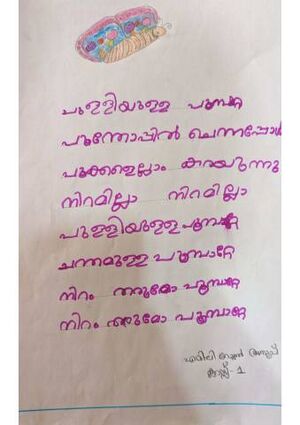 പുള്ളിയുള്ള പൂമ്പാറ്റ
പൂന്തോപ്പിൽ ചെന്നപ്പോൾ
പൂക്കളെല്ലാം കരയുന്നു
നിറമില്ലാ നിറമില്ലാ
പുള്ളിയുള്ള പൂമ്പാറ്റേ
ചന്തമുള്ള പൂമ്പാറ്റേ
നിറം തരുമോ പൂമ്പാറ്റേ
നിറം തരുമോ പൂമ്പാറ്റേ
ക്ലാസ്സ് - 1